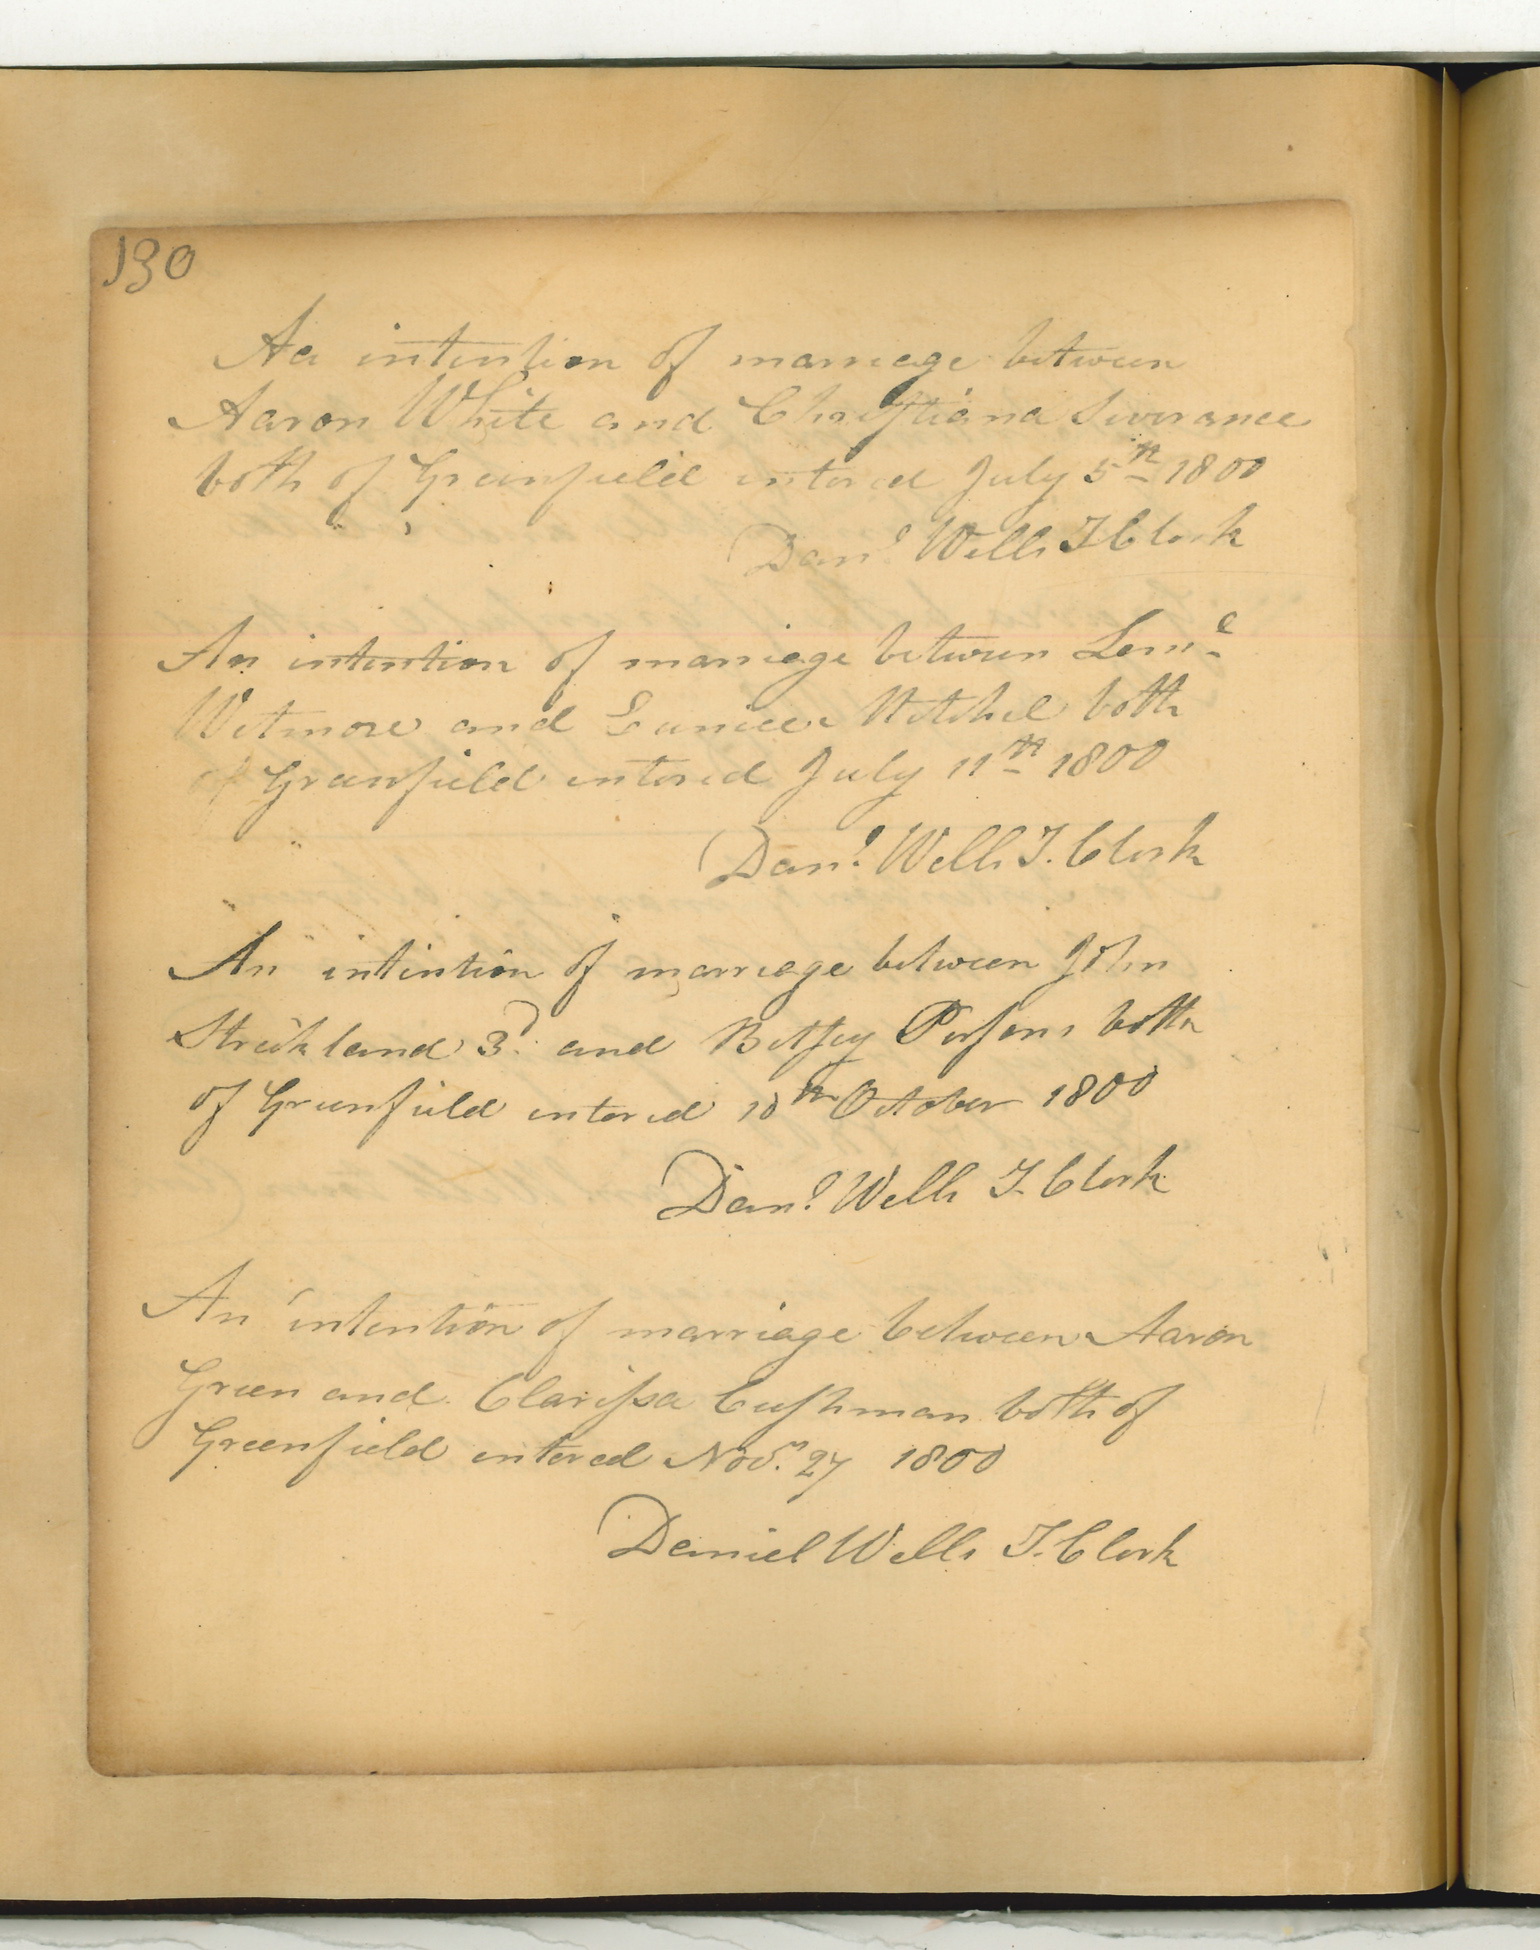 130
An intention of marriage between
Aaron White and Christiana Severance
both of Greenfield entered July 5th 1800
Danl Wells T Clerk
An intention of marriage between Leml
Wetmore and Eunice both
of Greenfield entered July 11th 1800
Danl Wells T. Clerk
An intention of marriage between John
Strickland 3d. and Betsey Persons both
of Greenfield entered 10th October 1800
Danl Wells T. Clerk
An intention of marriage between Aaron
Green and Clarissa Cushman both of
Greenfield entered Novr. 27 1800
Daniel Wells T. Clerk